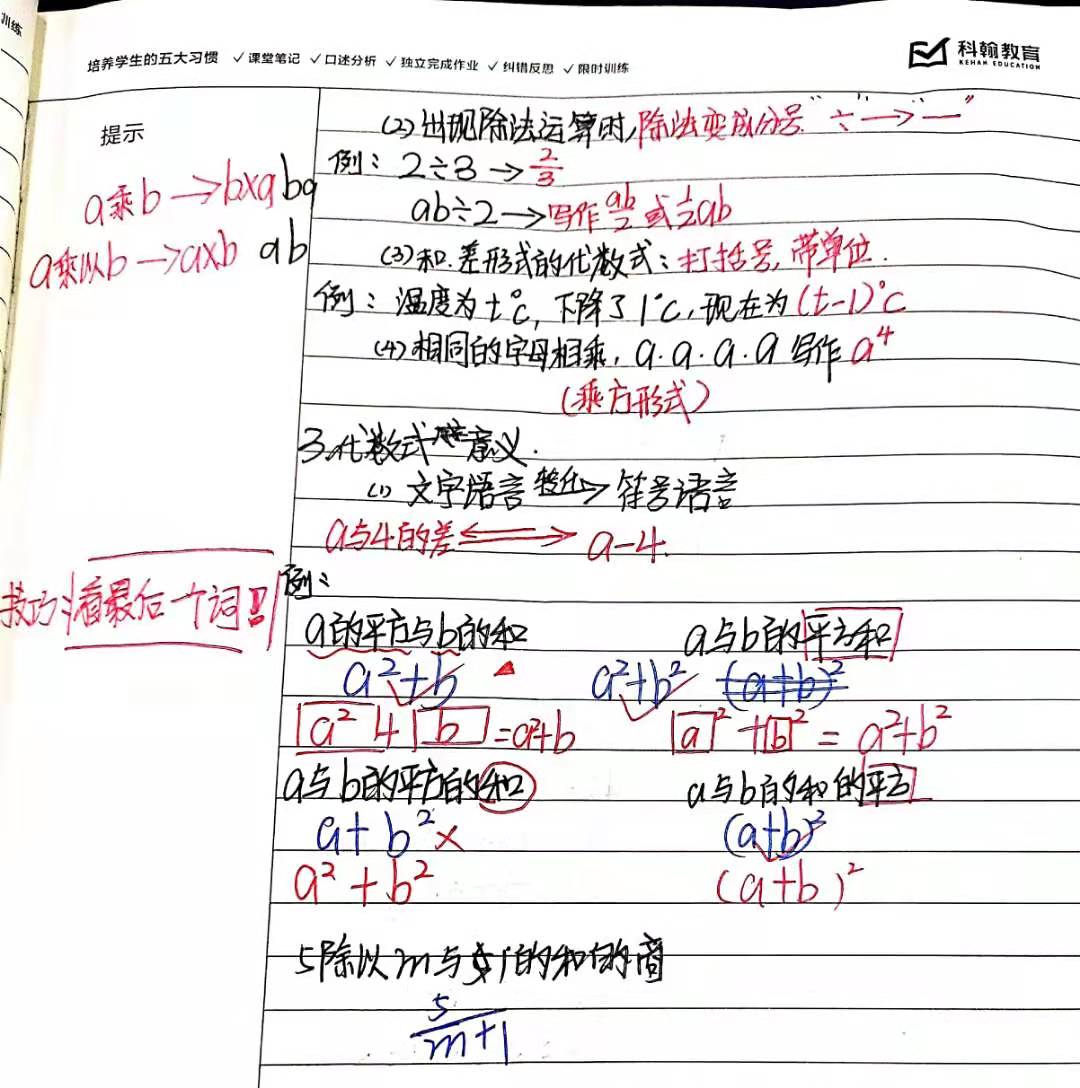 训练
培养学生的五大习惯 ✓课堂笔记 ✓口述分析 ✓独立完成作业 ✓纠错反思 ✓限时训练
科翰教育
KEHAN EDUCATION
提示
(2)出现除法运算时,除法变成分号 "÷"→"—"
a乘b→b×a ba
例：2÷3→2/3
ab÷2→写作ab/2或1/2ab
a乘以b→a×b ab
(3)和.差形式的代数式：打括号,带单位.
例：温度为t℃,下降了1℃,现在为(t-1)℃
(4)相同的字母相乘,a·a·a·a写作a⁴
(乘方形式)
3.代数式 意义.
(1)文字语言 转化→符号语言
a与4的差⟺a-4.
技巧:看最后一个词!!
例：
a的平方与b的和 a与b的平方和
a²+b a²+b² (a+b)²
a²+b=a²+b a²+b²=a²+b²
a与b的平方的和 a与b的和的平方
a+b²× (a+b)²
a²+b² (a+b)²
5除以m与1的和的商
5/m+1